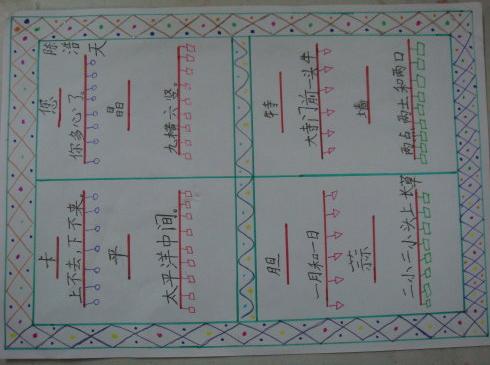 陈浩天
卡
上不去,下不来
平
太平洋中间。
您
你多心了。
晶
九横六竖。
胆
一月和一日
蒜
二小二小头上长草
特
大寺门前一头牛
墙
两点两土和两口